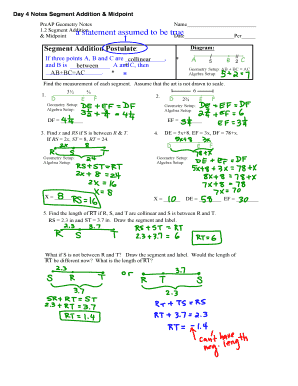 Day 4 Notes Segment Addition & Midpoint
PreAP Geometry Notes Name
1.2 Segment Addition
& Midpoint Date Per
a statement assumed to be true
Segment Addition Postulate:
If three points A, B and C are collinear,
and B is between A and C, then
AB+BC=AC.
Diagram:
A B C
5 2
Geometry Setup: AB + BC = AC
Algebra Setup: 5 + 2 = 7
Find the measurement of each segment. Assume that the art is not drawn to scale.
1.
Geometry Setup: DE + EF = DF
Algebra Setup:
DF =
2.
6
Geometry Setup: DE + EF = DF
Algebra Setup:
EF =
3. Find x and RS if S is between R & T.
If RS = 2x, ST = 8, RT = 24.
2x 8
R S T
24
Geometry Setup: RS + ST = RT
Algebra Setup: 2x + 8 = 24
2x = 16
x = 8
X = 8 RS = 16
4. DE = 5x+8, EF = 3x, DF = 78+x.
5x+8 3x
78+x
Geometry Setup: DE + EF = DF
Algebra Setup: 5x+8+3x = 78+x
8x+8 = 78+x
7x+8 = 78
7x = 70
X = 10 DE = 58 EF = 30
5. Find the length of RT if R, S, and T are collinear and S is between R and T.
RS = 2.3 and ST = 3.7 cm. Draw the segment and label.
2.3 3.7
R S T
RS + ST = RT
2.3 + 3.7 = 6
RT = 6
What if S is not between R and T? Draw the segment and label. Would the length of
RT be different now? What is the length of RT?
2.3
S R T
3.7
SR + RT = ST
2.3 + RT = 3.7
RT = 1.4
or
3.7
R T S
2.3
RT + TS = RS
RT + 3.7 = 2.3
RT = -1.4
can't have
neg. length